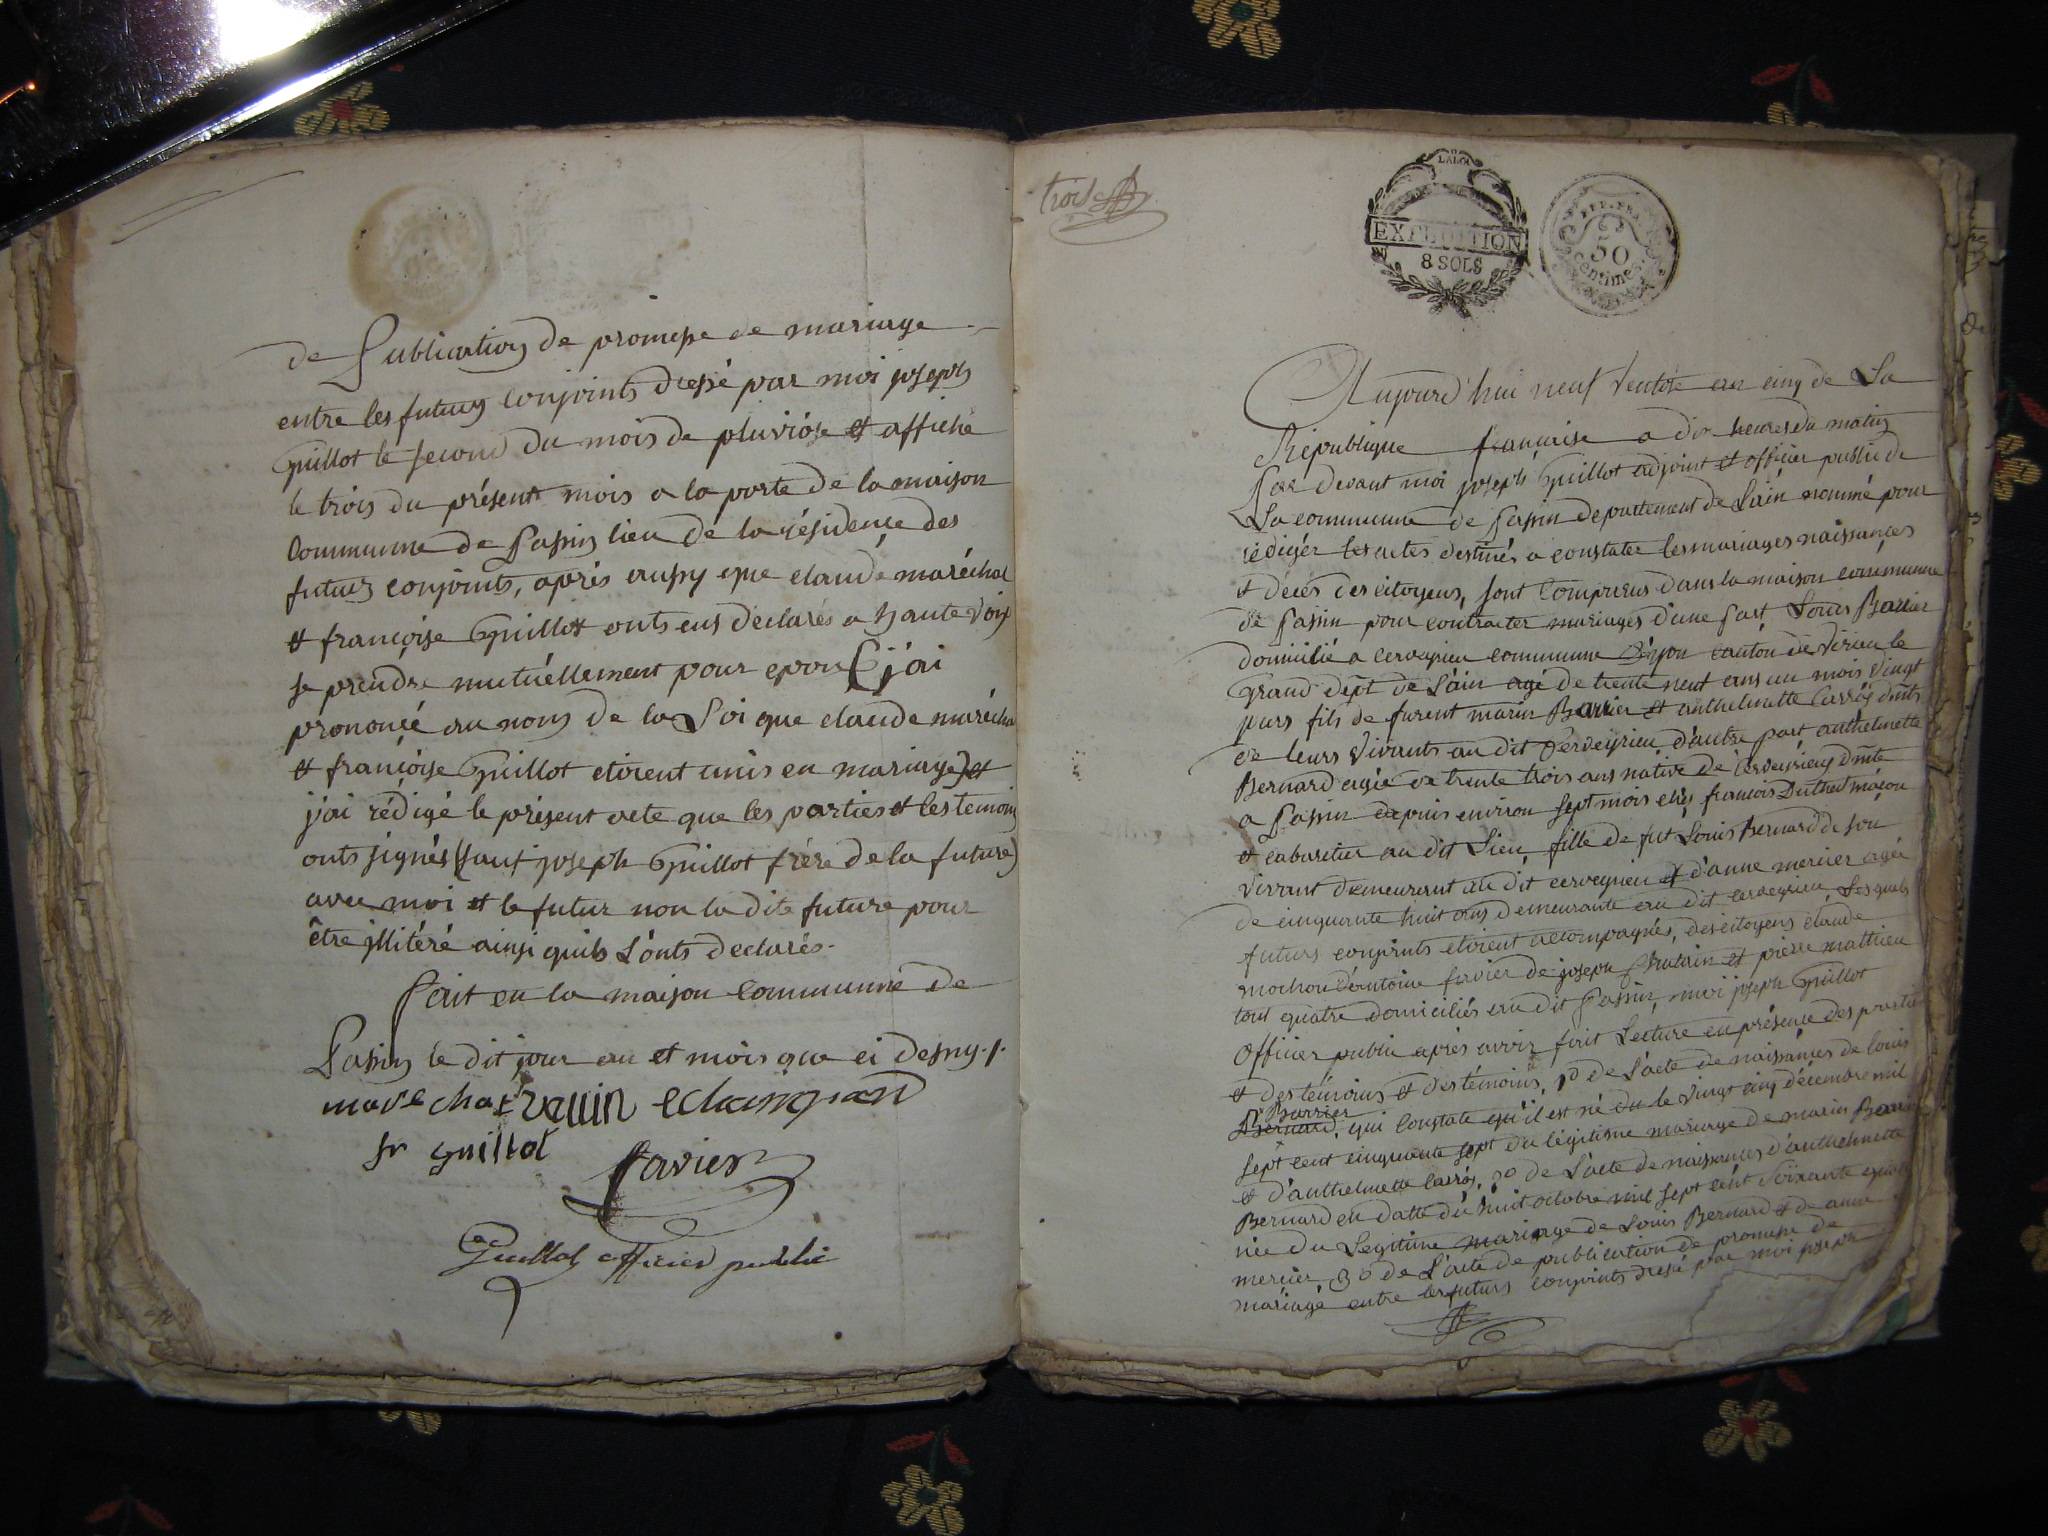 de Publication de promesse de mariage
entre les futurs conjoints dressé par moi joseph
Guillot le second du mois de pluviôse et affiché
le trois du présent mois a la porte de la maison
Commune de Passin lieu de la résidence des
futurs conjoints, après aussy que claude maréchal
et françoise Guillot onts eus déclarés a haute voix
se prendre mutuéllement pour epoux j'ai
prononçé au nom de la Loi que claude marécha
et françoise Guillot etoient unis en mariage et
j'ai rédigé le présent acte que les parties et les temoins
onts signés (sauf joseph Guillot frère de la future)
avec moi et le futur non la dite future pour
être jllitéré ainsi quils L'onts declarés.
fait en la maison commune de
Passin le dit jour an et mois que ci desny .
marechal vellin
fr guillot
favier
Guillot officier public
trois
LA LOI
EXPEDITION
8 SOLS
REP. FRA.
50
centimes
Aujourd'hui neuf Ventôse an cinq de La
République française a dix heures du matin
Par devant moi joseph Guillot adjoint et officier public de
La commune de Passin departement de L'ain nommé pour
rédiger les actes destinés a constater les mariages naissances
et décès des citoyens, sont Comparus dans la maison commune
de Passin pour contracter mariages d'une part Louis Barrier
domicilié a cerveyrieu commune canton de virieu le
Grand dept de L'ain agé de trente neuf ans un mois vingt
jours fils de furent marin Barrier et anthelmette Carrós dmts
de leurs vivants au dit Cerveyrieu, d'autre part anthelmette
Bernard agée de trente trois ans native de cerveyrieu dmte
a Passin depuis environ sept mois chés francois maçon
et cabaretier au dit Lieu, fille de fut Louis Bernard de son
vivant demeurant au dit cerveyrieu et d'anne mercier agée
de cinquante huit ans demeurante au dit cerveyrieu Lesquels
futurs conjoints etoient accompagnés, des citoyens claude
mochon d'antoine favier de joseph et pière mathieu
tout quatre domiciliés au dit Passin, moi joseph Guillot
Officier public après avoir fait Lecture en présence des partie
et des témoins et des témoins, 1º de L'acte de naissances de louis
Barrier
Bernard, qui Constate qu'il est né du le vingt cinq décembre mil
sept cent cinquante sept du légitime mariage de marin Barrier
et d'anthelmette Carrós, 2º de L'acte de naissances d'anthelmette
Bernard en datte du huit octobre mil sept cent soixante
née du Legitime mariage de Louis Bernard et de anne
mercier 3º de L'acte de publication de promesse de
mariage entre les futurs conjoints dressé par moi joseph